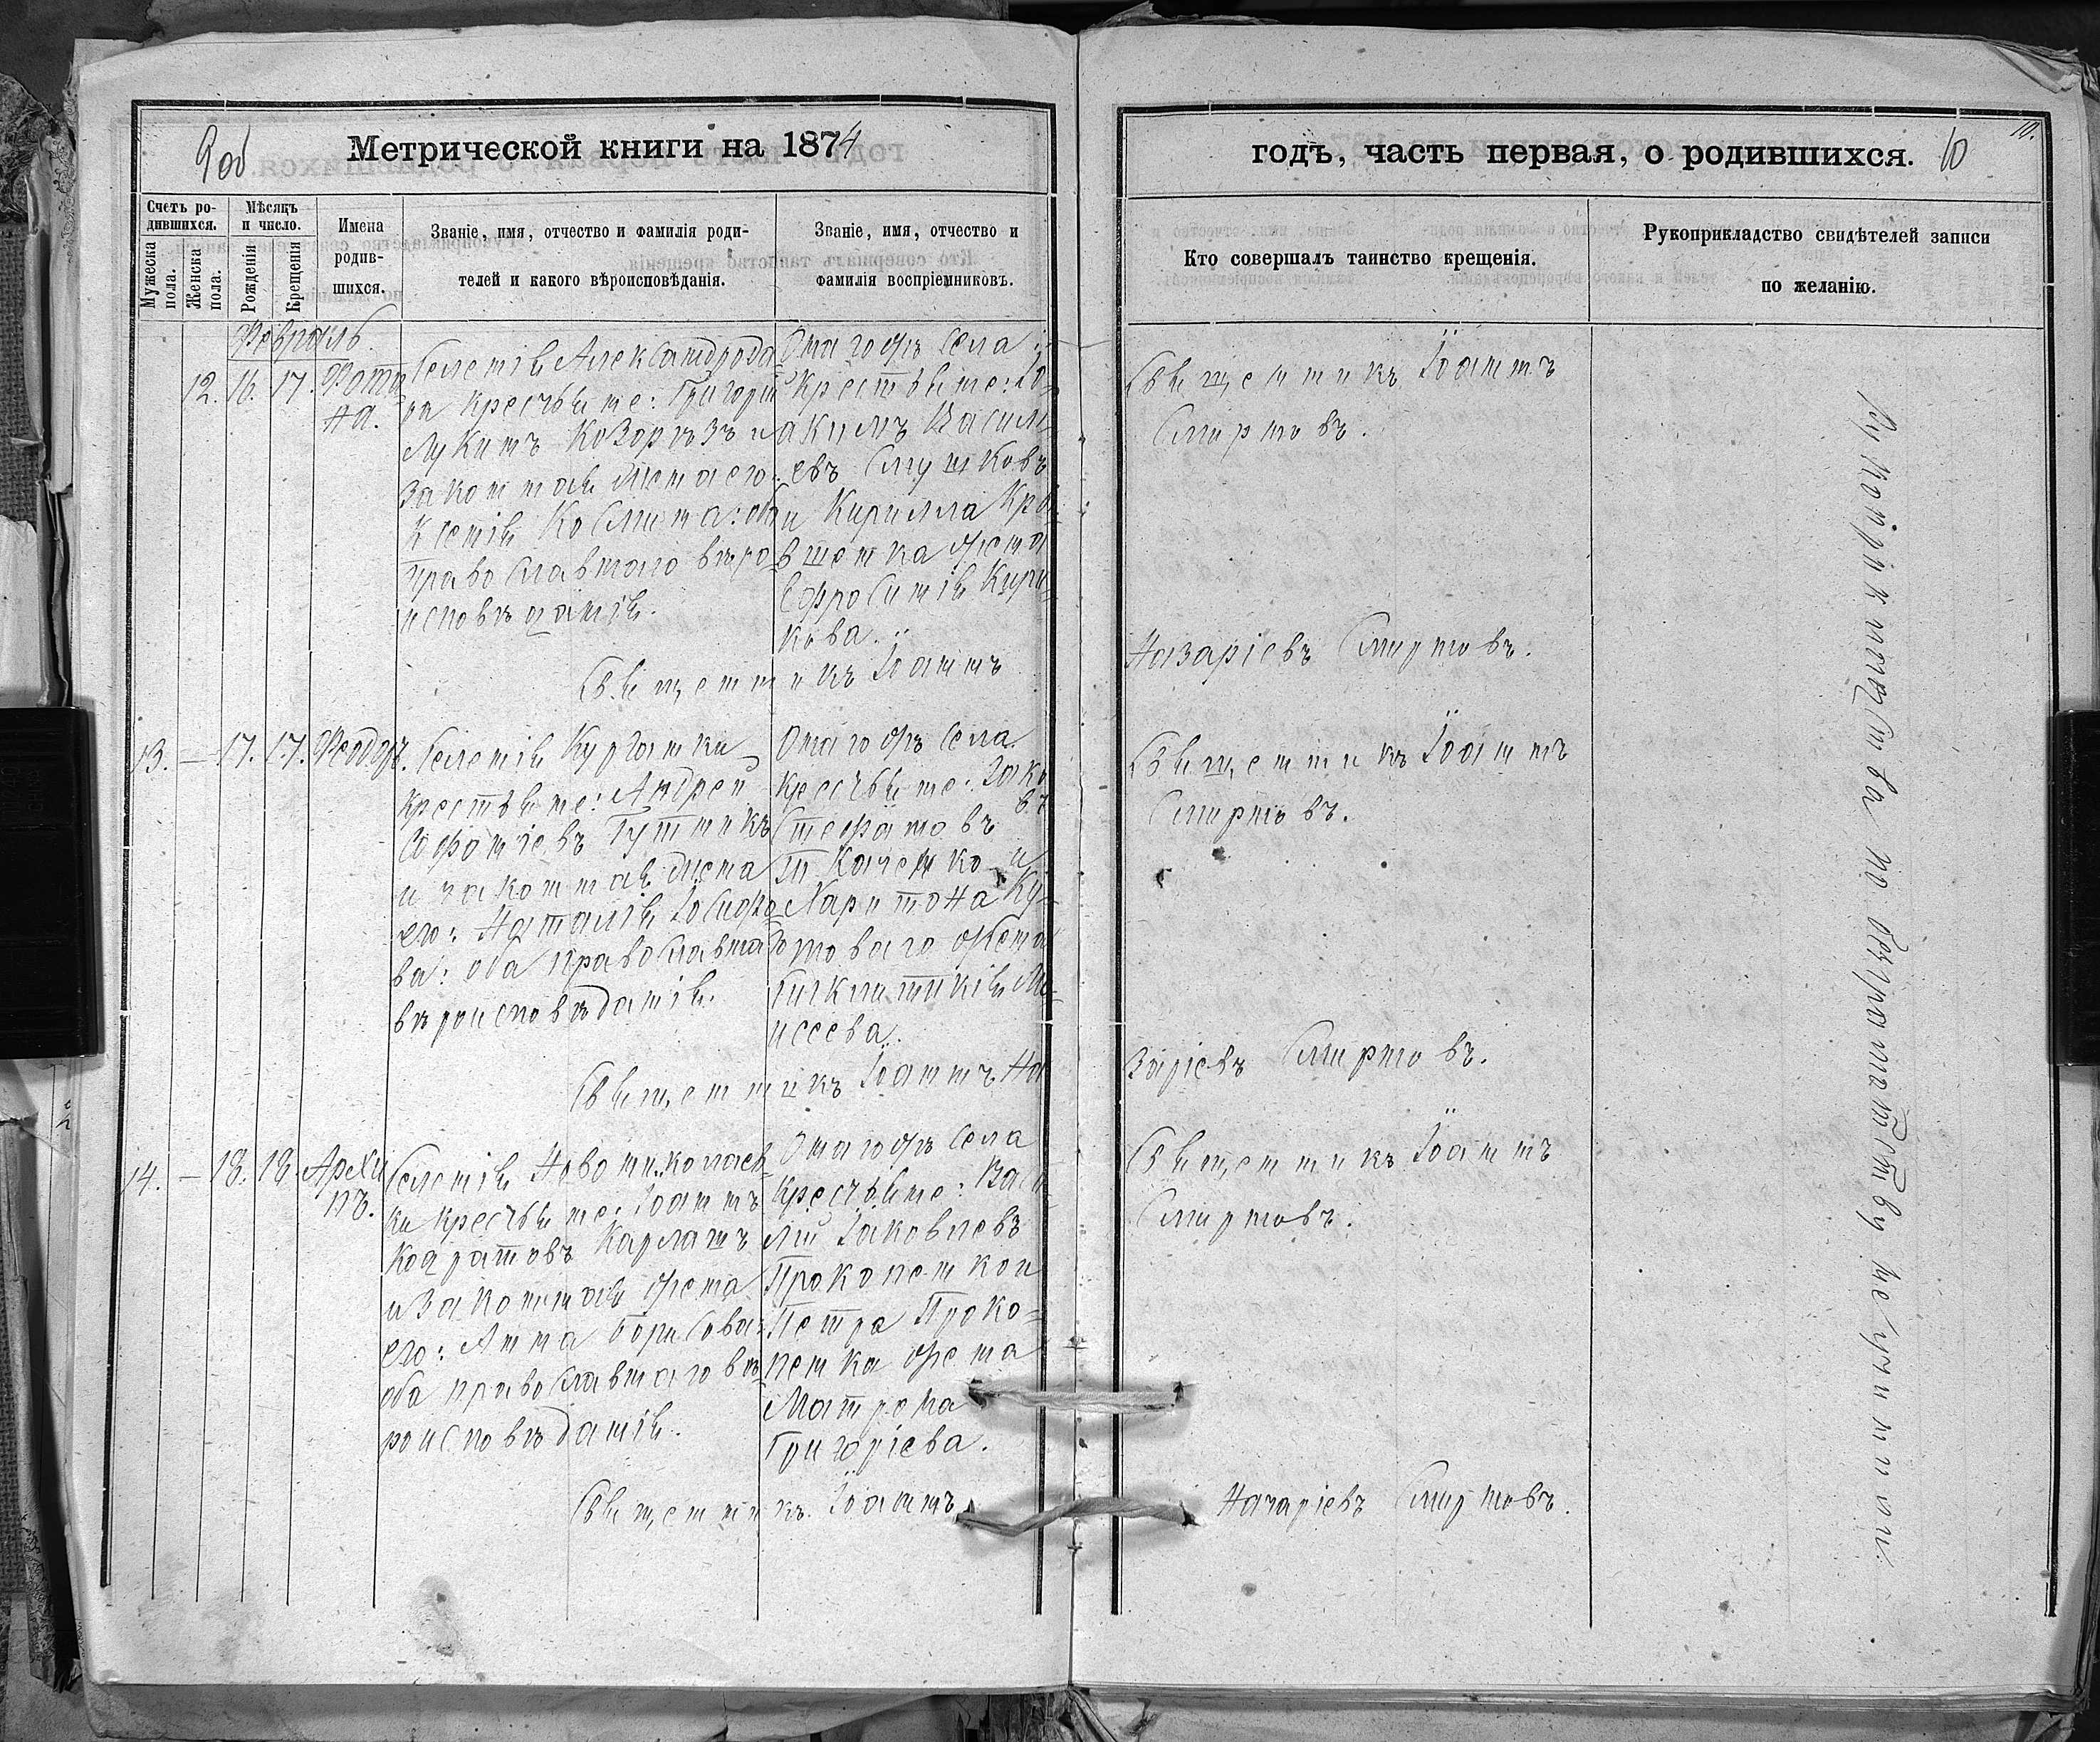 Метрической книги на 1874
годъ, часть первая, о родившихся.
10
10.
Счетъ ро-
дившихся.
Мужеска
пола.
Женска
пола.
Мѣсяцъ
и число.
Рожденія
Крещенія
Имена
родив-
шихся.
Званіе, имя, отчество и фамилія роди-
телей и какого вѣроисповѣданія.
Званіе, имя, отчество и
фамилія воспріемниковъ.
Кто совершалъ таинство крещенія.
Рукоприкладство свидѣтелей записи
по желанію.
Февраль.
12. 16. 17. Фоти-
на.
Селенія Александров-
ки кресть
Лукинъ Козорѣзъ и
законная жена его:
Ксенія Космина: оба
православнаго вѣро-
исповѣданія.
Тогожъ села
крестьяне: Іо-
акимъ Василі-
евъ Глушковъ
и Кирилла Кра-
вшенка жена
Ефросинія Кири-
кова.
Священникъ Іоаннъ
Смирновъ.
Священникъ Іоаннъ
Назаріевъ Смирновъ.
13. — 17. 17. Феодоръ.
Селенія Курганки
крестьяне: Андрей
Софоніевъ Гутникъ
и законная жена
его: Наталія Іосифо-
ва: оба православна
вѣроисповѣданія.
Тогожъ села
кресьяне: Іако
въ
Стефановъ
Ткаченко и
Харитона Ку-
товаго жена
Гликлитикія Мо-
исеева.
Священникъ Іоаннъ
Смирновъ.
Священникъ Іоаннъ На
заріевъ Смирновъ.
14. — 18. 18. Архи
пъ.
Селенія Новониколаев-
ки кресьяне: Іоаннъ
Кондратовъ Карлашъ
и законная жена
его: Анна Борисова:
оба православнаго вѣ-
роисповѣданія.
Тогожъ села
кресьяне: Васи-
лій Іаковлевъ
Прокопенко и
Петра Проко-
пенка жена
Матрона
Григоріева.
Священникъ Іоаннъ
Смирновъ.
Священникъ Іоаннъ
Назаріевъ Смирновъ.
Рукоприкладства по безграмотству не учинили.